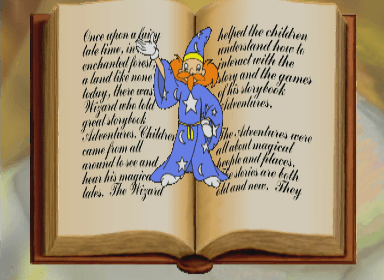 Once upon a fairy
tale time, in
enchanted forest
a land like none
today, there was
Wizard who told
great storybook
Adventures. Children
came from all
around to see and
hear his magical
tales. The Wizard
helped the children
understand how to
interact with the
story and the games
of his storybook
Adventures.
The Adventures were
all about magical
people and places,
stories are both
old and new. They